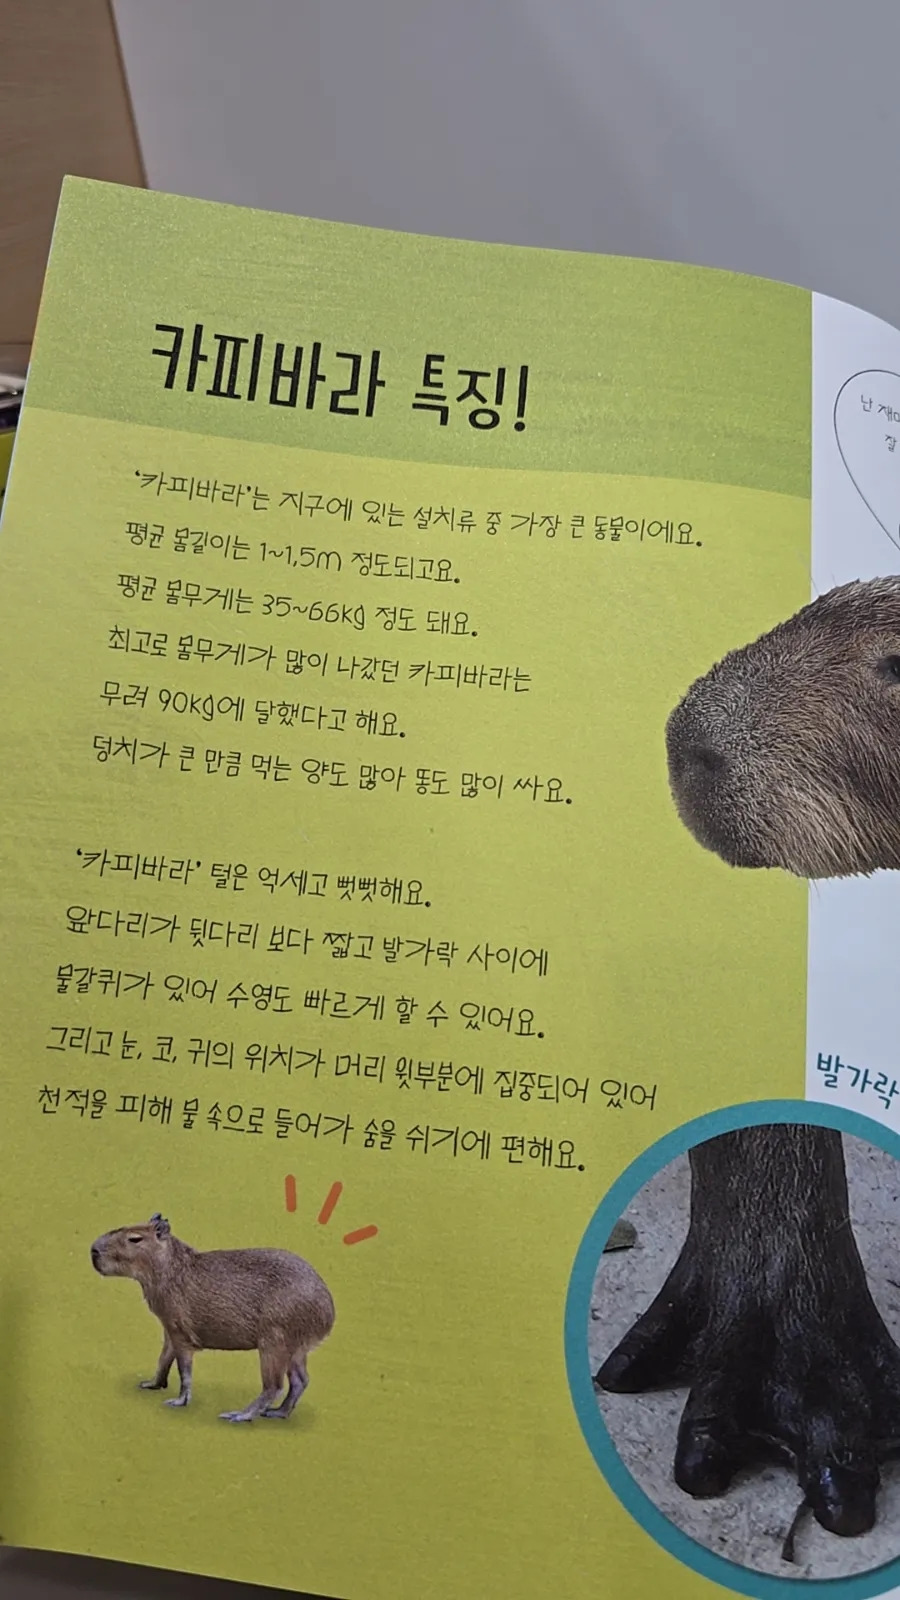 카피바라 특징!
'카피바라'는 지구에 있는 설치류 중 가장 큰 동물이에요.
평균 몸길이는 1~1.5m 정도되고요.
평균 몸무게는 35~66kg 정도 돼요.
최고로 몸무게가 많이 나갔던 카피바라는
무려 90kg에 달했다고 해요.
덩치가 큰 만큼 먹는 양도 많아 똥도 많이 싸요.
'카피바라' 털은 억세고 뻣뻣해요.
앞다리가 뒷다리 보다 짧고 발가락 사이에
물갈퀴가 있어 수영도 빠르게 할 수 있어요.
그리고 눈, 코, 귀의 위치가 머리 윗부분에 집중되어 있어
천적을 피해 물 속으로 들어가 숨을 쉬기에 편해요.
난
잘
발가락